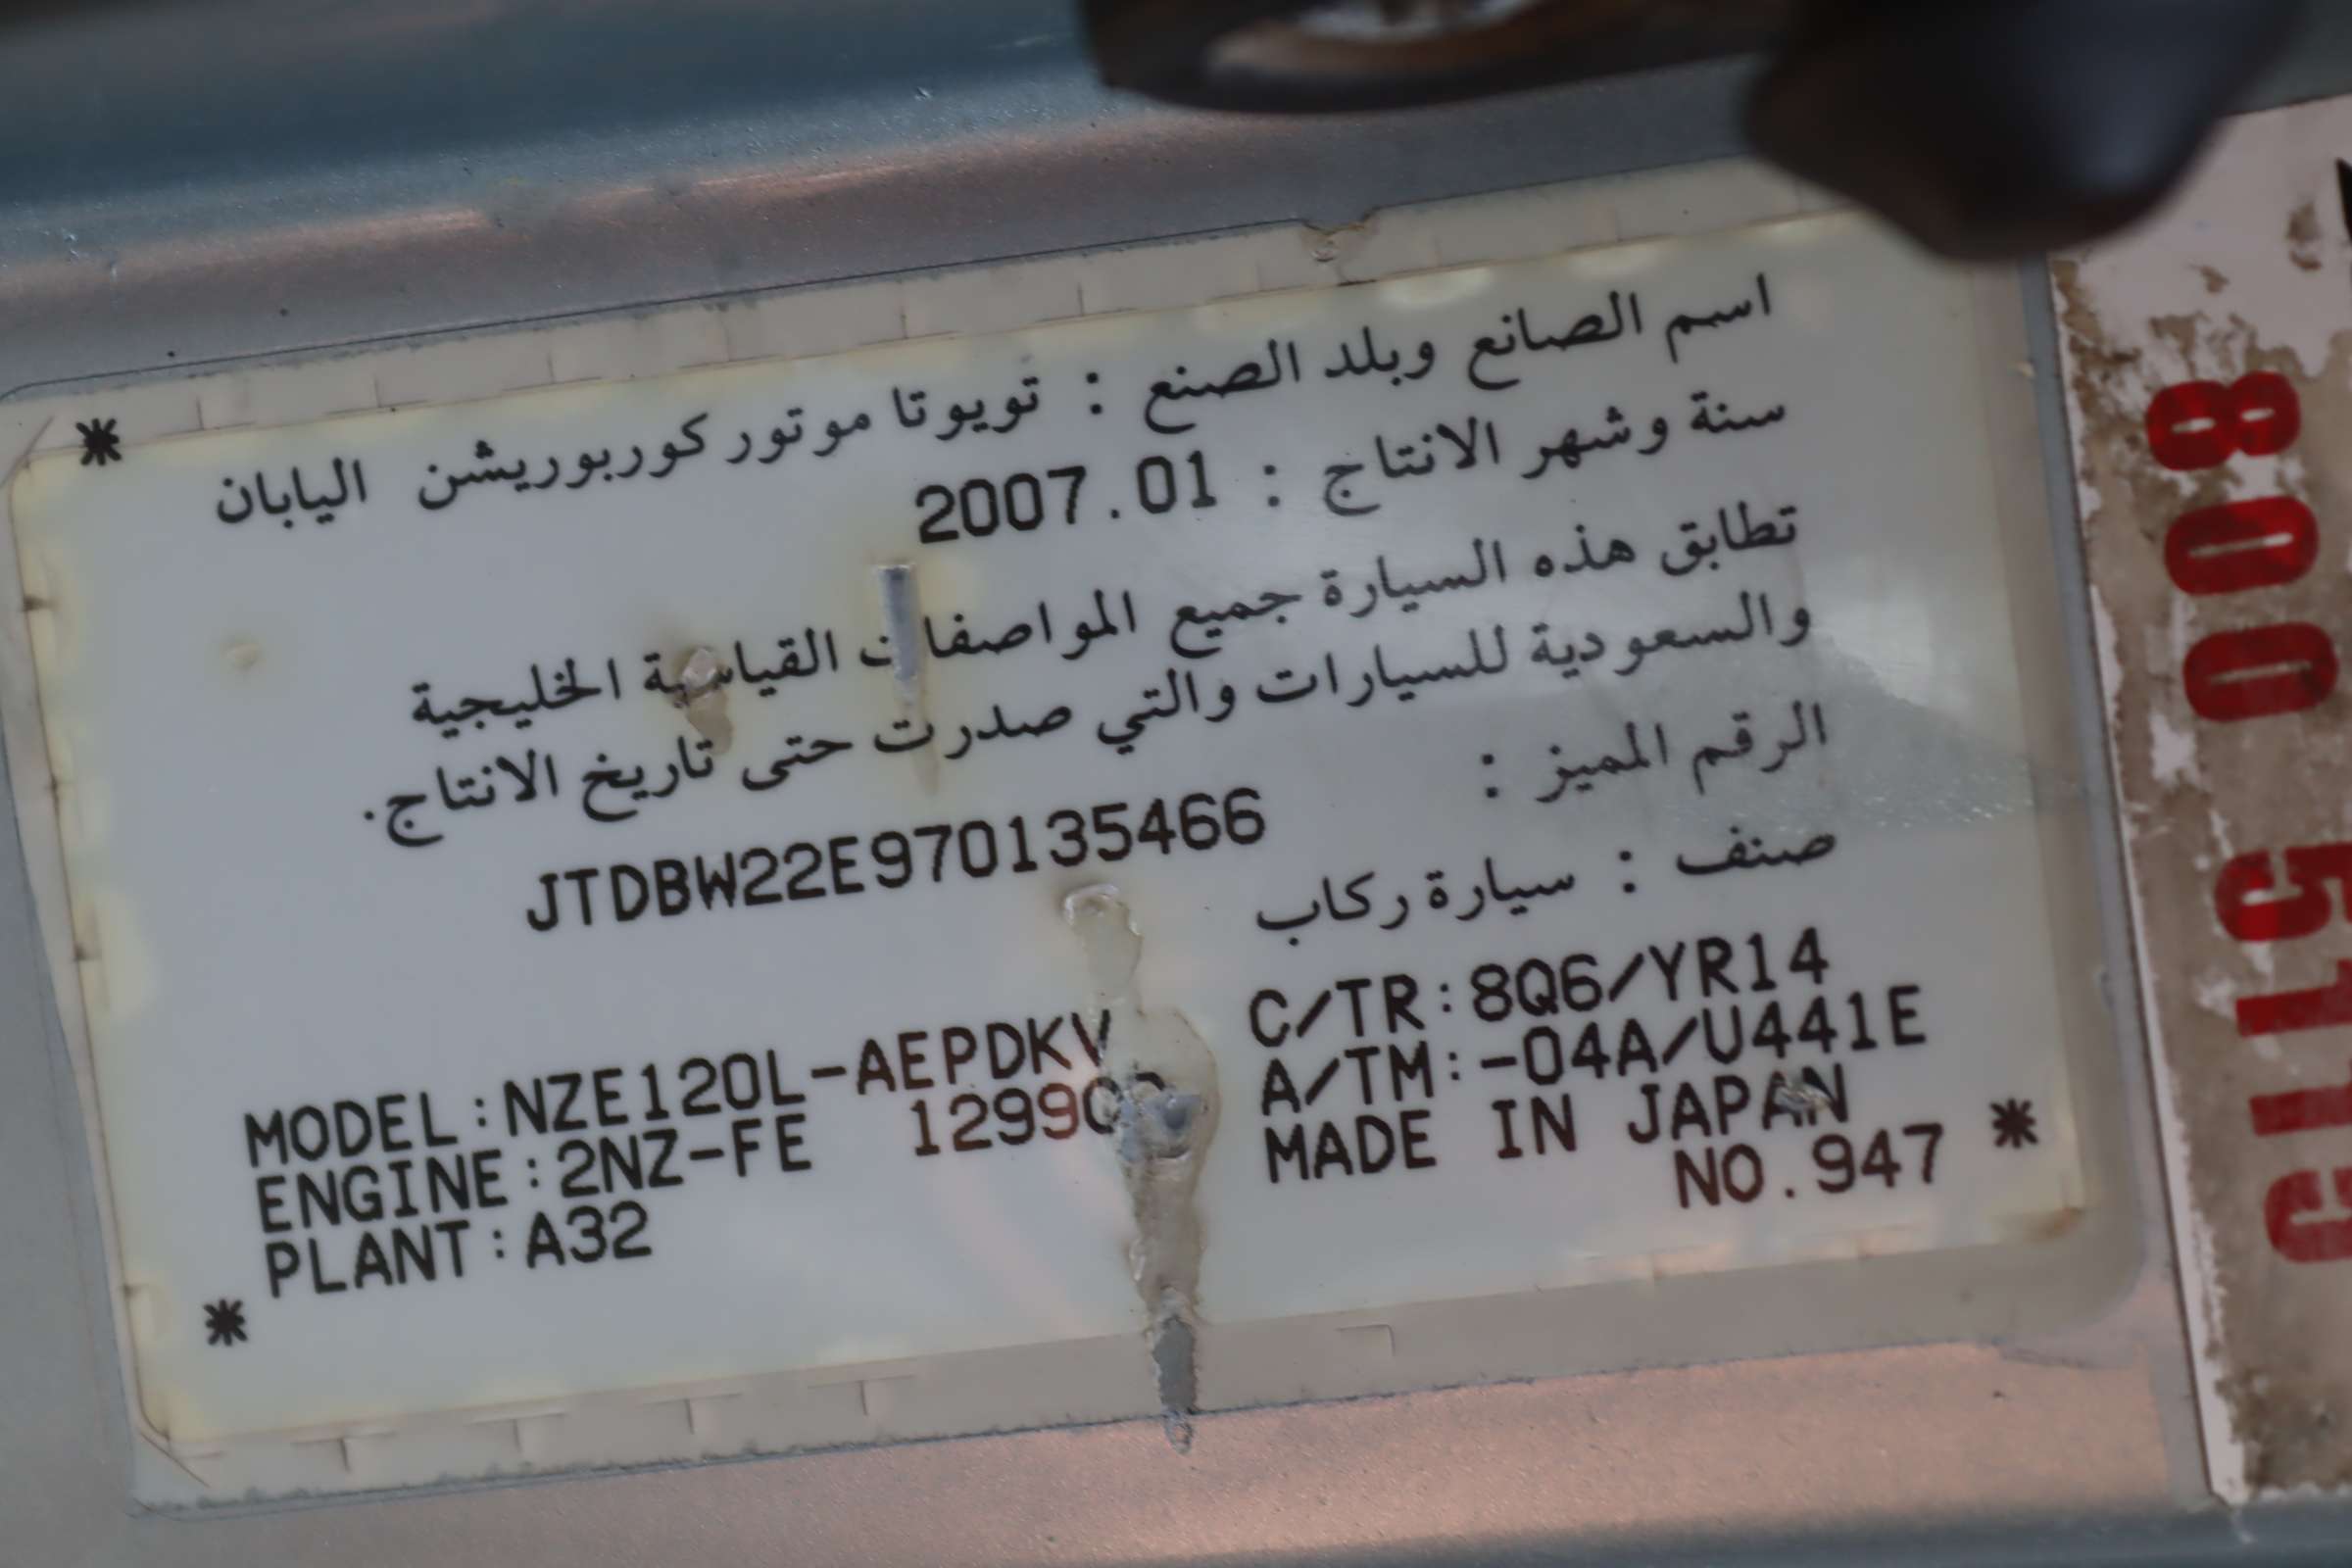 *
اسم الصانع وبلد الصنع : تويوتا موتور كوربوريشن اليابان
سنة وشهر الانتاج : 2007.01
تطابق هذه السيارة جميع المواصفات القياسية الخليجية
والسعودية للسيارات والتي صدرت حتى تاريخ الانتاج.
الرقم المميز :
JTDBW22E970135466
صنف : سيارة ركاب
MODEL:NZE120L-AEPDKV
C/TR:8Q6/YR14
ENGINE:2NZ-FE
A/TM:-04A/U441E
PLANT:A32
MADE IN JAPAN
NO.947 *
*